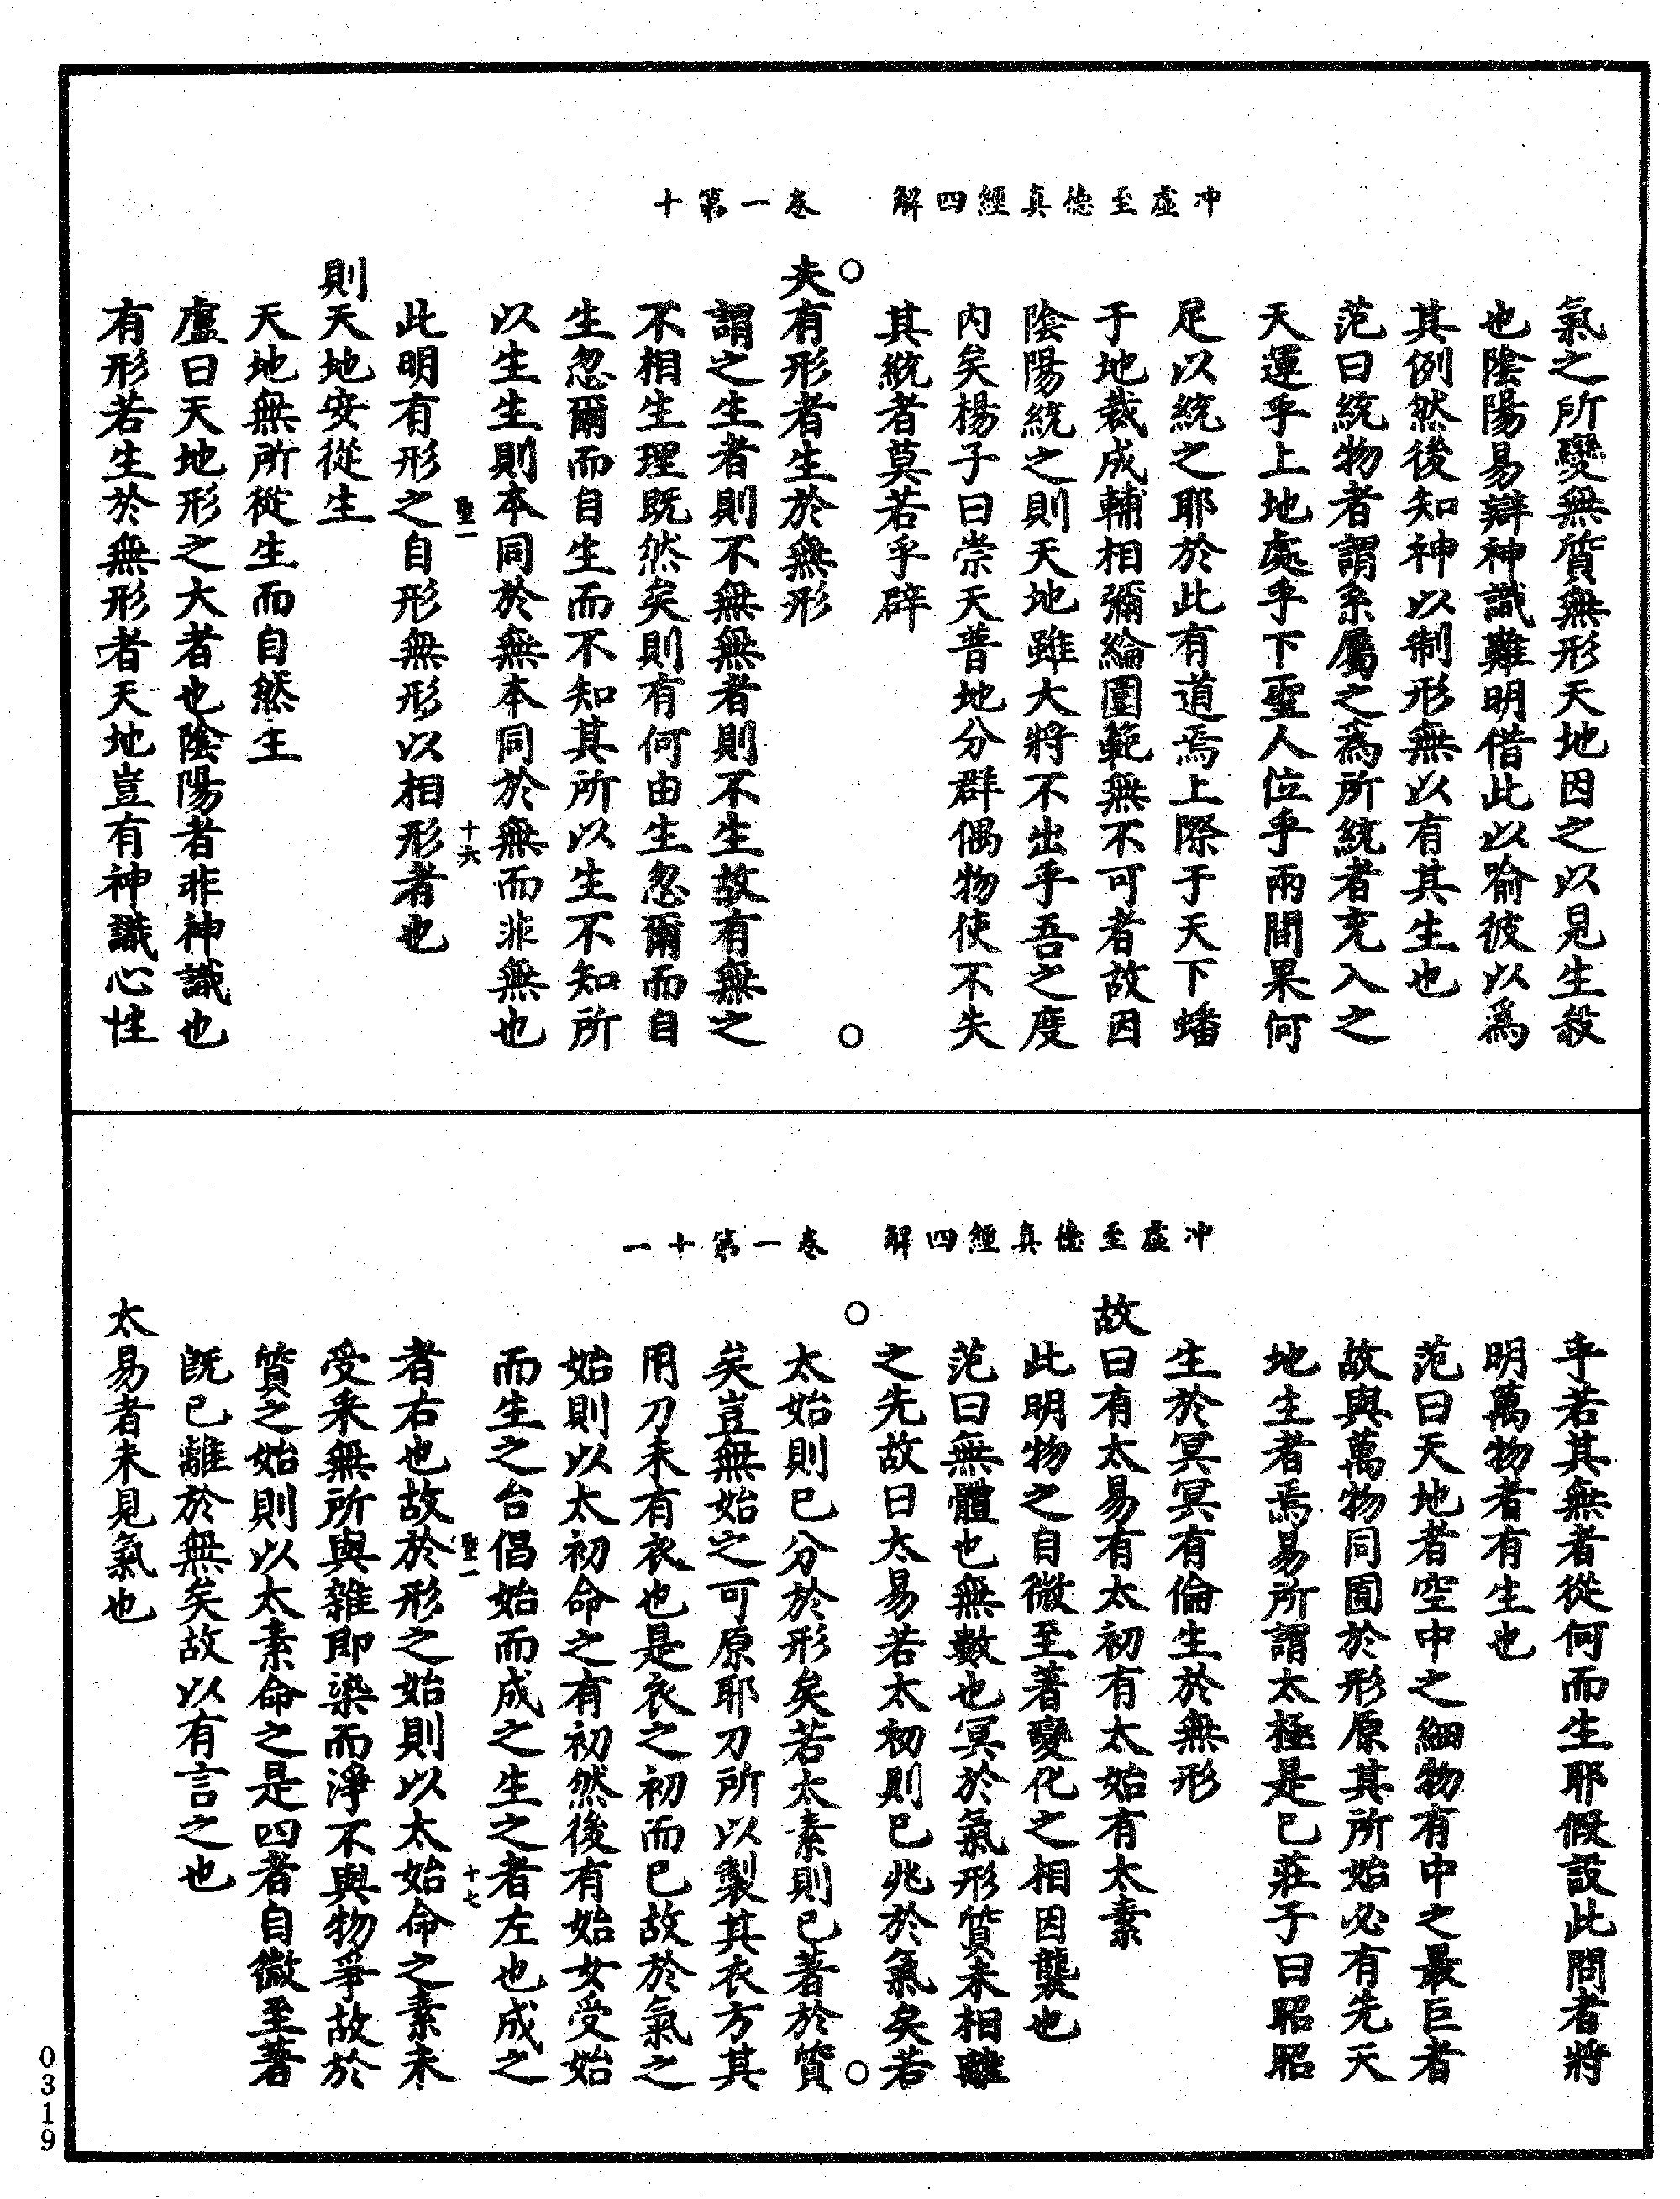 冲虛至德真經四解 卷一第十
氣之所變無質無形天地因之以見生殺
也陰陽易辯神識難明借此以喻彼以爲
其例然後知神以制形無以有其生也
范曰統物者謂系屬之爲所統者充入之
天運乎上地處乎下聖人位乎兩間果何
足以統之耶於此有道焉上際于天下蟠
于地裁成輔相彌綸圍範無不可者故因
陰陽統之則天地雖大將不出乎吾之度
内矣楊子曰崇天普地分群偶物使不失
其統者莫若乎辟
○ ○
夫有形者生於無形
謂之生者則不無無者則不生故有無之
不相生理既然矣則有何由生忽爾而自
生忽爾而自生而不知其所以生不知所
以生生則本同於無本同於無而非無也
聖一 十六
此明有形之自形無形以相形者也
則天地安從生
天地無所從生而自然生
盧曰天地形之大者也陰陽者非神識也
有形若生於無形者天地豈有神識心性
冲虛至德真經四解 卷一第十一
乎若其無者從何而生耶假設此問者將
明萬物者有生也
范曰天地者空中之細物有中之最巨者
故與萬物同囿於形原其所始必有先天
地生者焉易所謂太極是已莊子曰昭昭
生於冥冥有倫生於無形
故曰有太易有太初有太始有太素
此明物之自微至著變化之相因襲也
范曰無體也無數也冥於氣形質未相離
之先故曰太易若太初則已兆於氣矣若
○ ○
太始則已分於形矣若太素則已著於質
矣豈無始之可原耶刀所以製其衣方其
用刀未有衣也是衣之初而已故於氣之
始則以太初命之有初然後有始女受始
而生之台倡始而成之生之者左也成之
聖一 十七
者右也故於形之始則以太始命之素未
受采無所與雜即染而淨不與物爭故於
質之始則以太素命之是四者自微至著
既已離於無矣故以有言之也
太易者未見氣也
0319